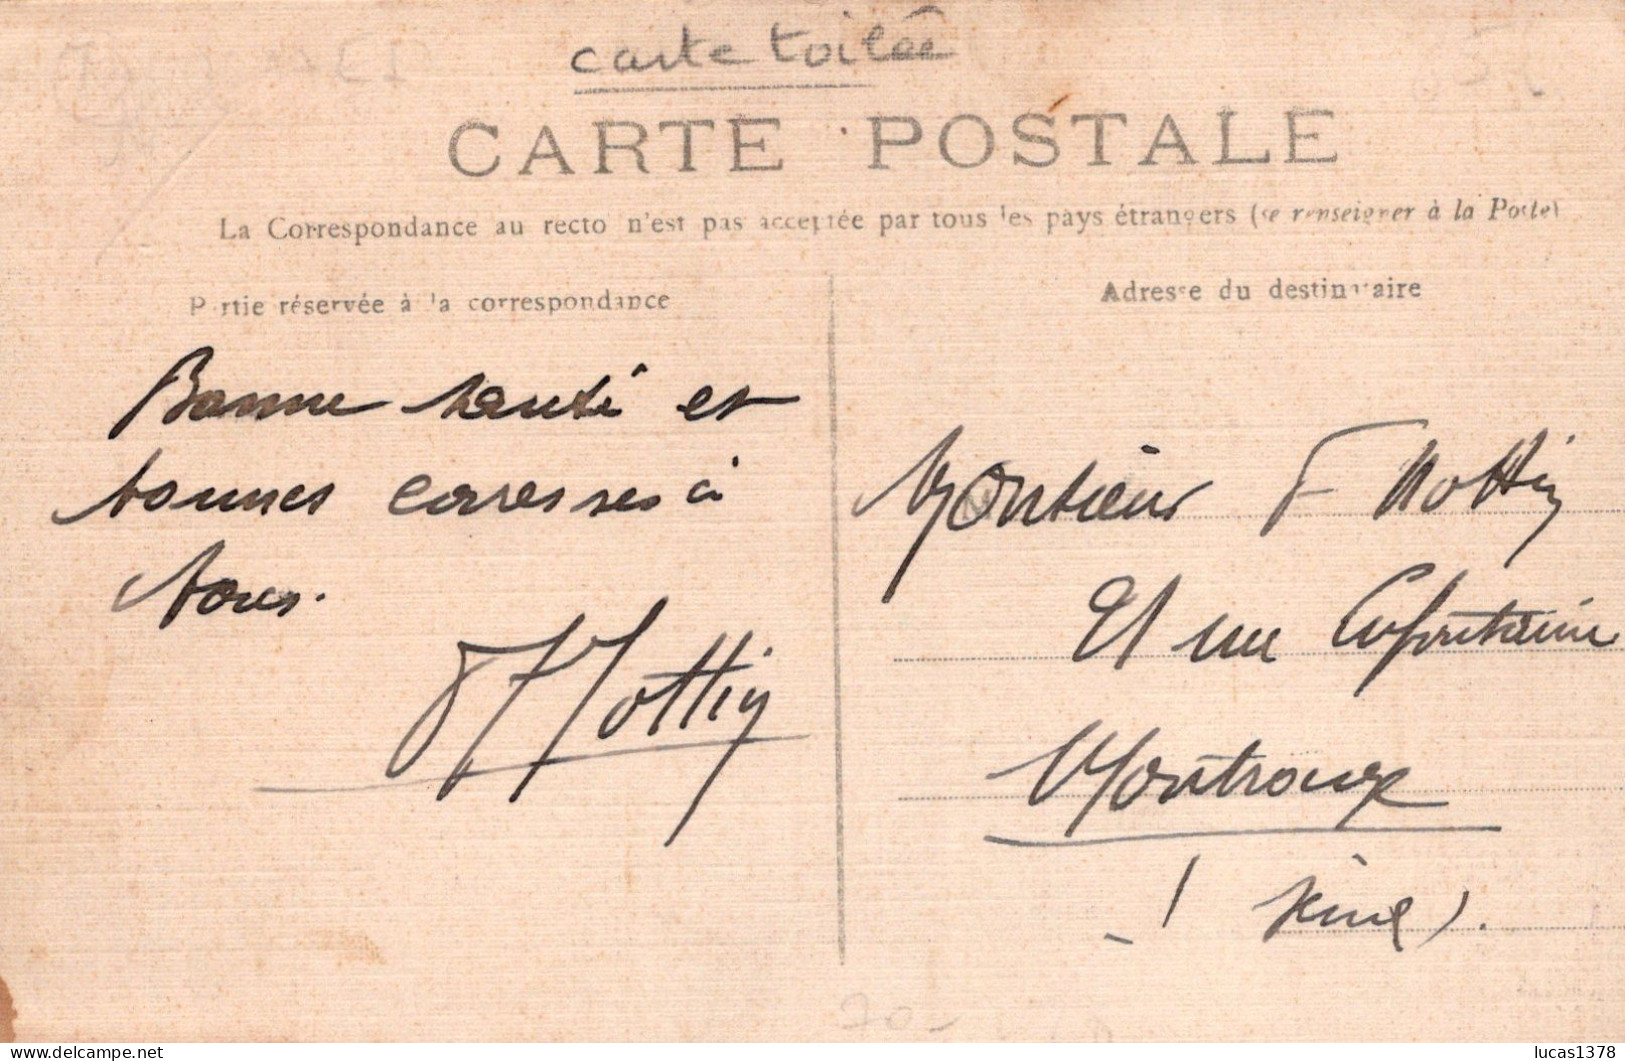 carte toilée
CARTE POSTALE
La Correspondance au recto n'est pas acceptée par tous les pays étrangers (se renseigner à la Poste)
Partie réservée à la correspondance
Bonne santé et
bonnes caresses à
tous.
Mottin
Adresse du destinataire
Monsieur F Mottin
rue Lafontaine
Montrouge
(Seine).
70-
lucas1378